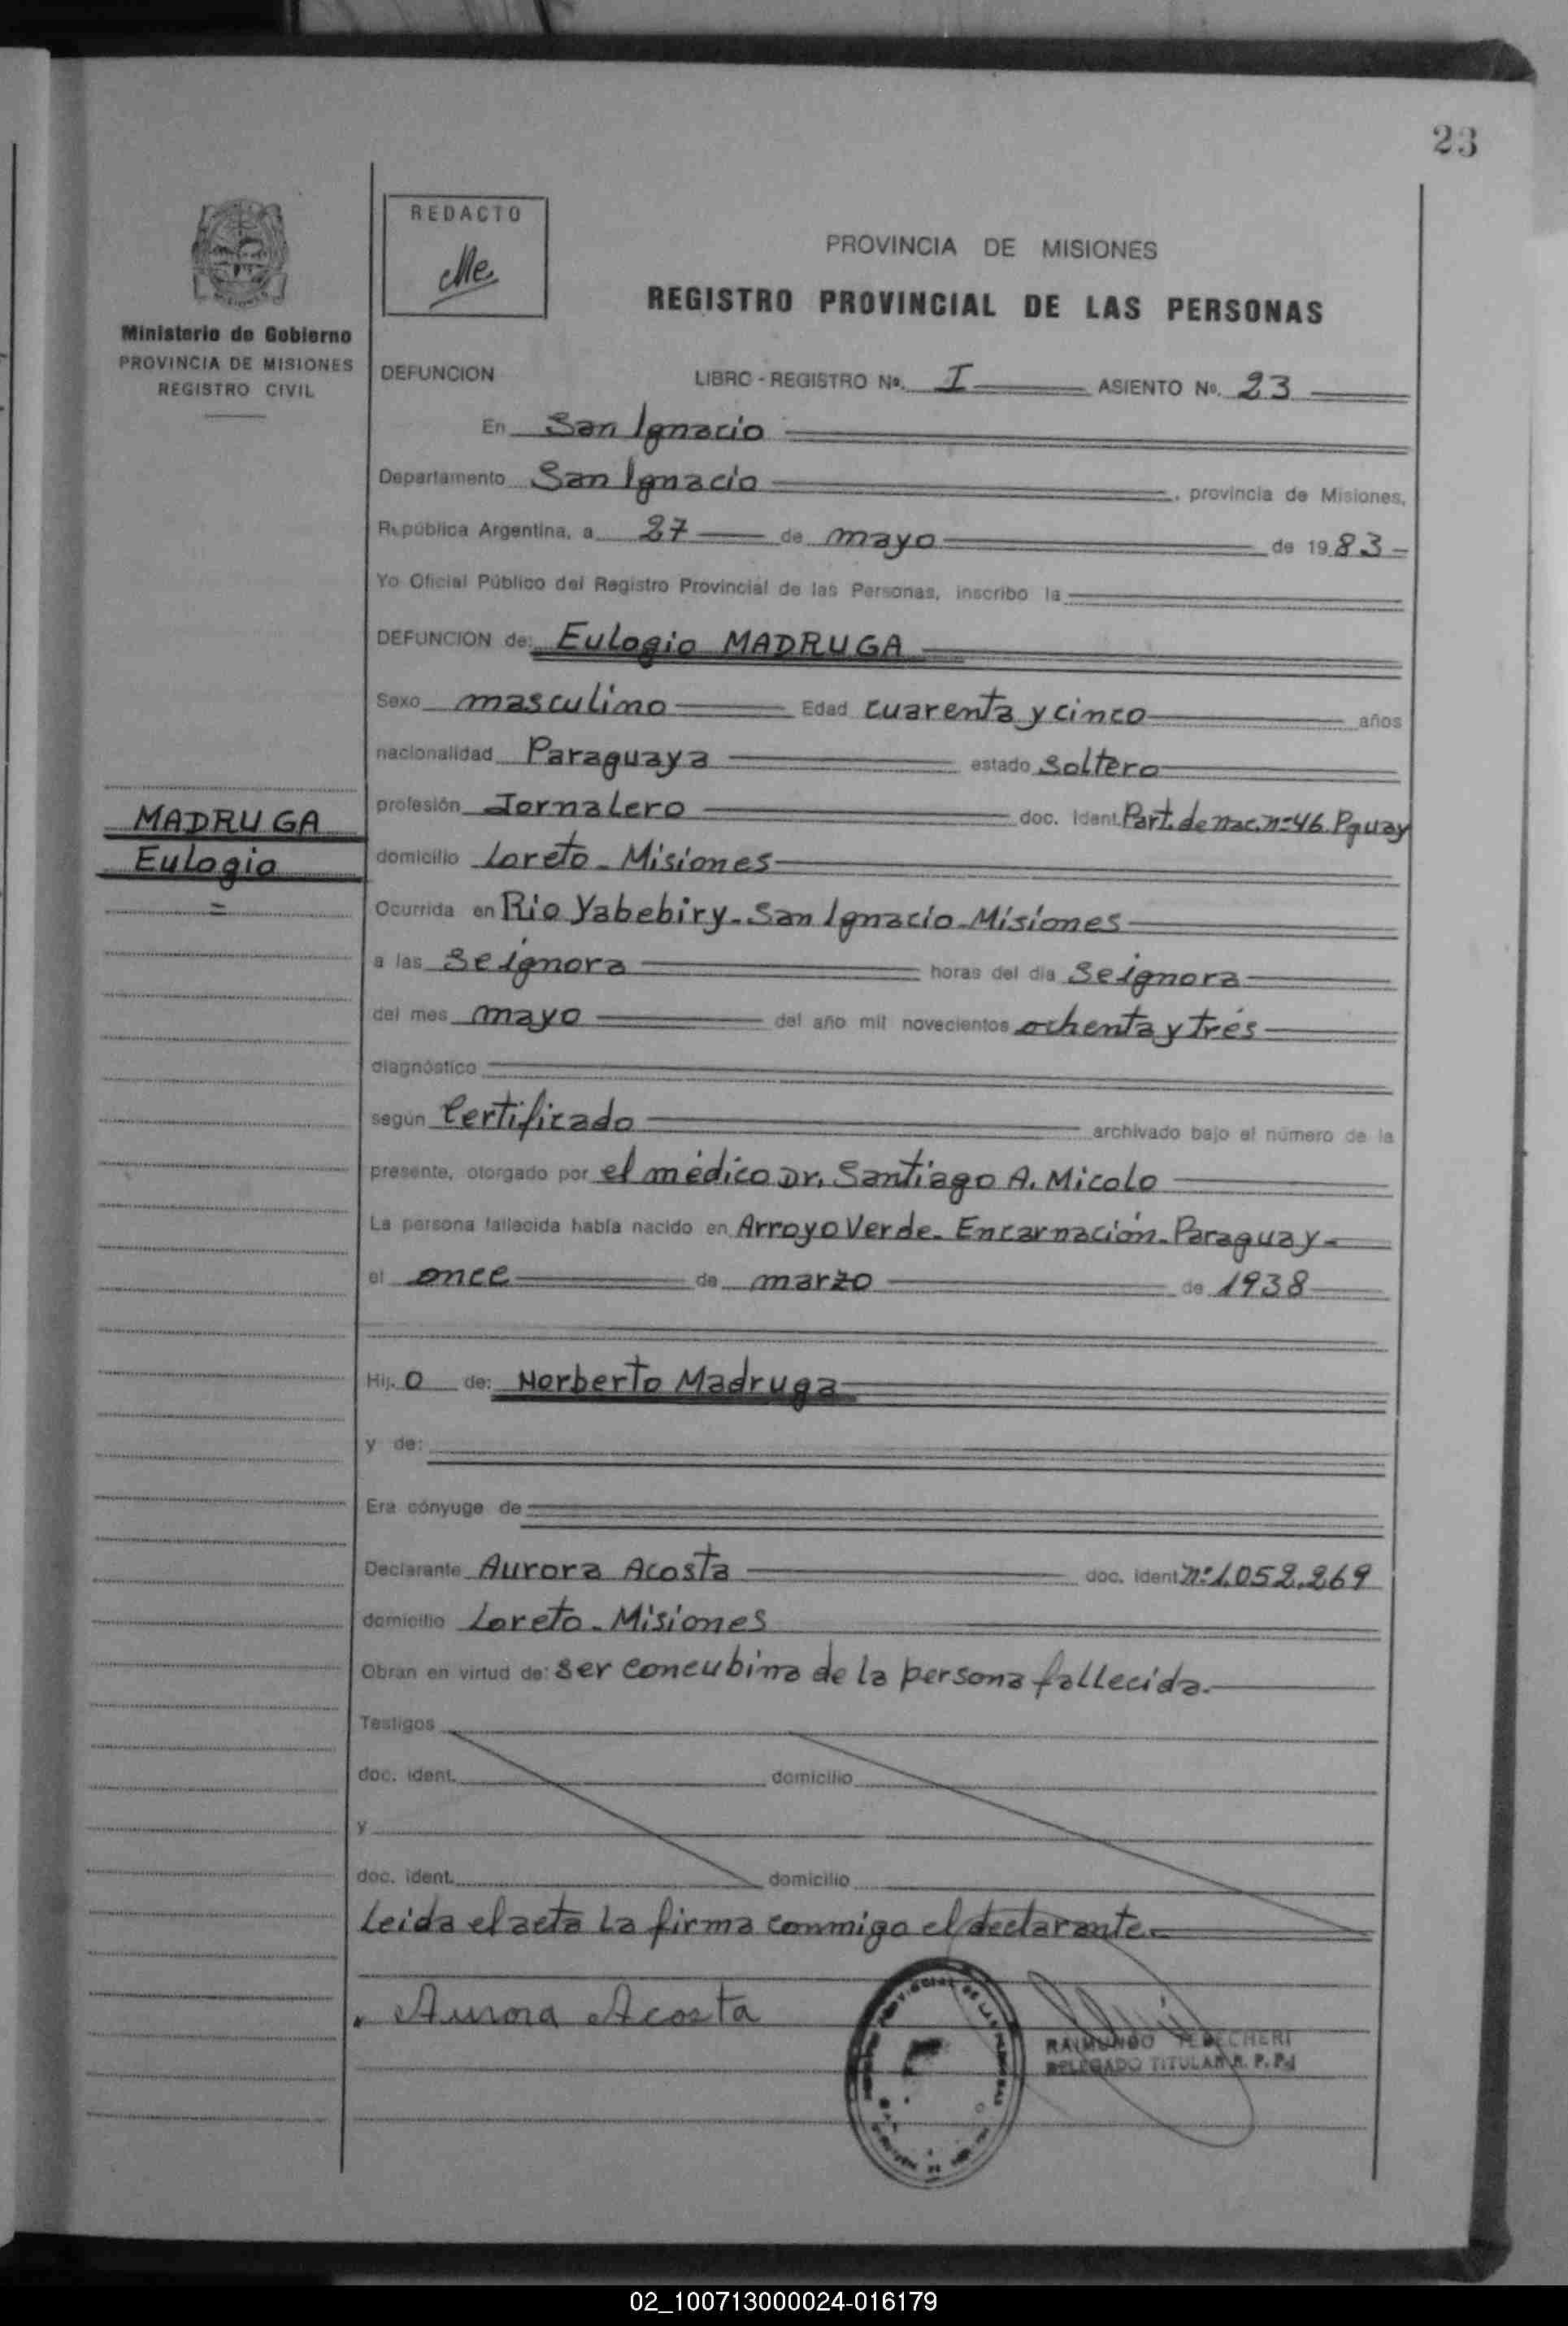 23
REDACTO
Me
PROVINCIA DE MISIONES
REGISTRO PROVINCIAL DE LAS PERSONAS
Ministerio de Gobierno
PROVINCIA DE MISIONES
REGISTRO CIVIL
DEFUNCION LIBRO - REGISTRO Nº. I ASIENTO Nº. 23
En San Ignacio
Departamento San Ignacio, provincia de Misiones,
República Argentina, a 27 de mayo de 1983
Yo Oficial Público del Registro Provincial de las Personas, inscribo la
DEFUNCION de: Eulogio MADRUGA
Sexo masculino Edad cuarenta y cinco años
nacionalidad Paraguaya estado Soltero
MADRUGA
Eulogio
=
profesión Jornalero doc. ident. Part. de nac. nº 46. Pguay
domicilio Loreto - Misiones
Ocurrida en Rio Yabebiry - San Ignacio - Misiones
a las Se ignora horas del día Se ignora
del mes mayo del año mil novecientos ochenta y trés
diagnóstico
según Certificado archivado bajo el número de la
presente, otorgado por el médico Dr. Santiago A. Micolo
La persona fallecida había nacido en Arroyo Verde - Encarnación - Paraguay -
el once de marzo de 1938
Hij. o de: Norberto Madruga
y de:
Era cónyuge de
Declarante Aurora Acosta doc. ident. nº 1.052.269
domicilio Loreto - Misiones
Obran en virtud de: ser concubina de la persona fallecida.
Testigos
doc. ident. domicilio
y
doc. ident. domicilio
Leida el acta la firma conmigo el declarante.
Aurora Acosta
RAIMUNDO
DELEGADO TITULAR R. P. P.
02_100713000024-016179